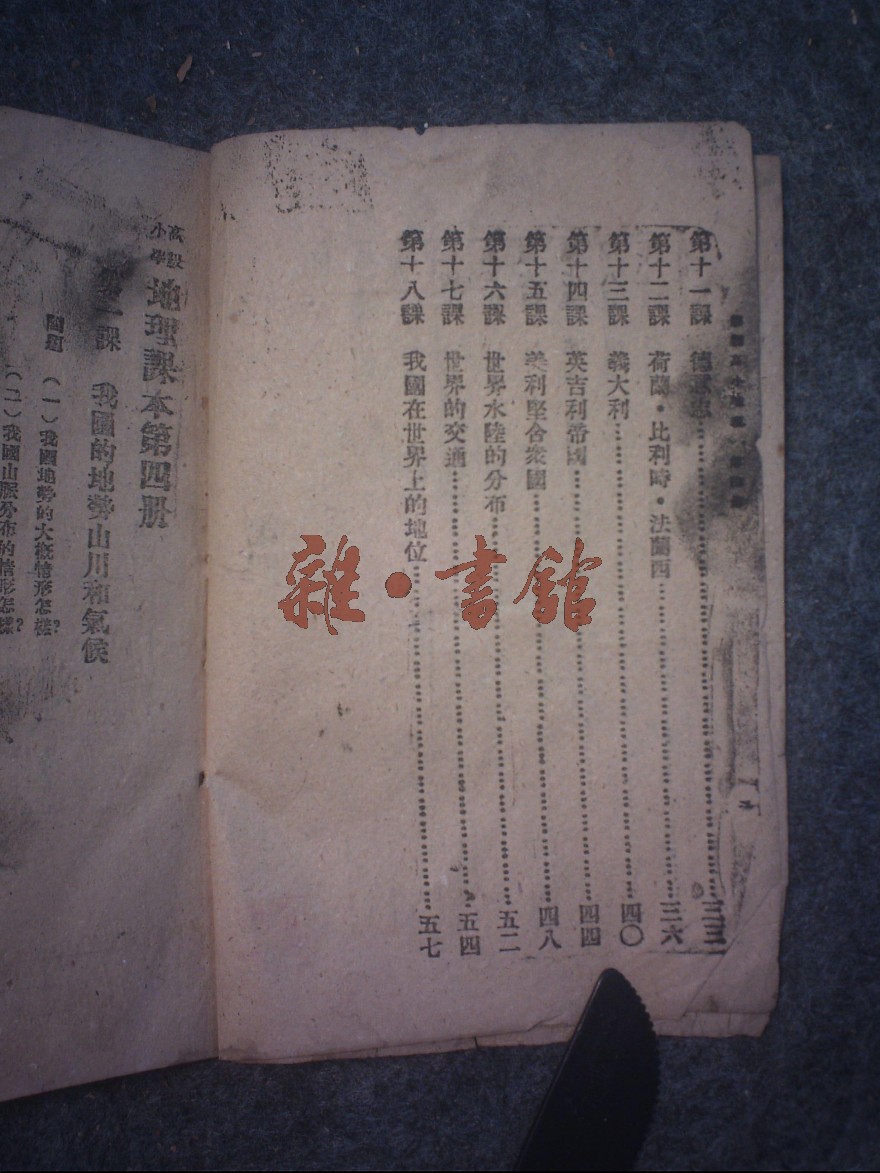 第十一課 德意志……三三
第十二課 荷蘭・比利時・法蘭西……三六
第十三課 義大利……四〇
第十四課 英吉利帝國……四四
第十五課 美利堅合衆國……四八
第十六課 世界水陸的分布……五二
第十七課 世界的交通……五四
第十八課 我國在世界上的地位……五七
高級小學 地理課本第四册
第一課 我國的地勢山川和氣候
問題 (一)我國地勢的大概情形怎樣?
(二)我國山脈分布的情形怎樣?
雜・書館